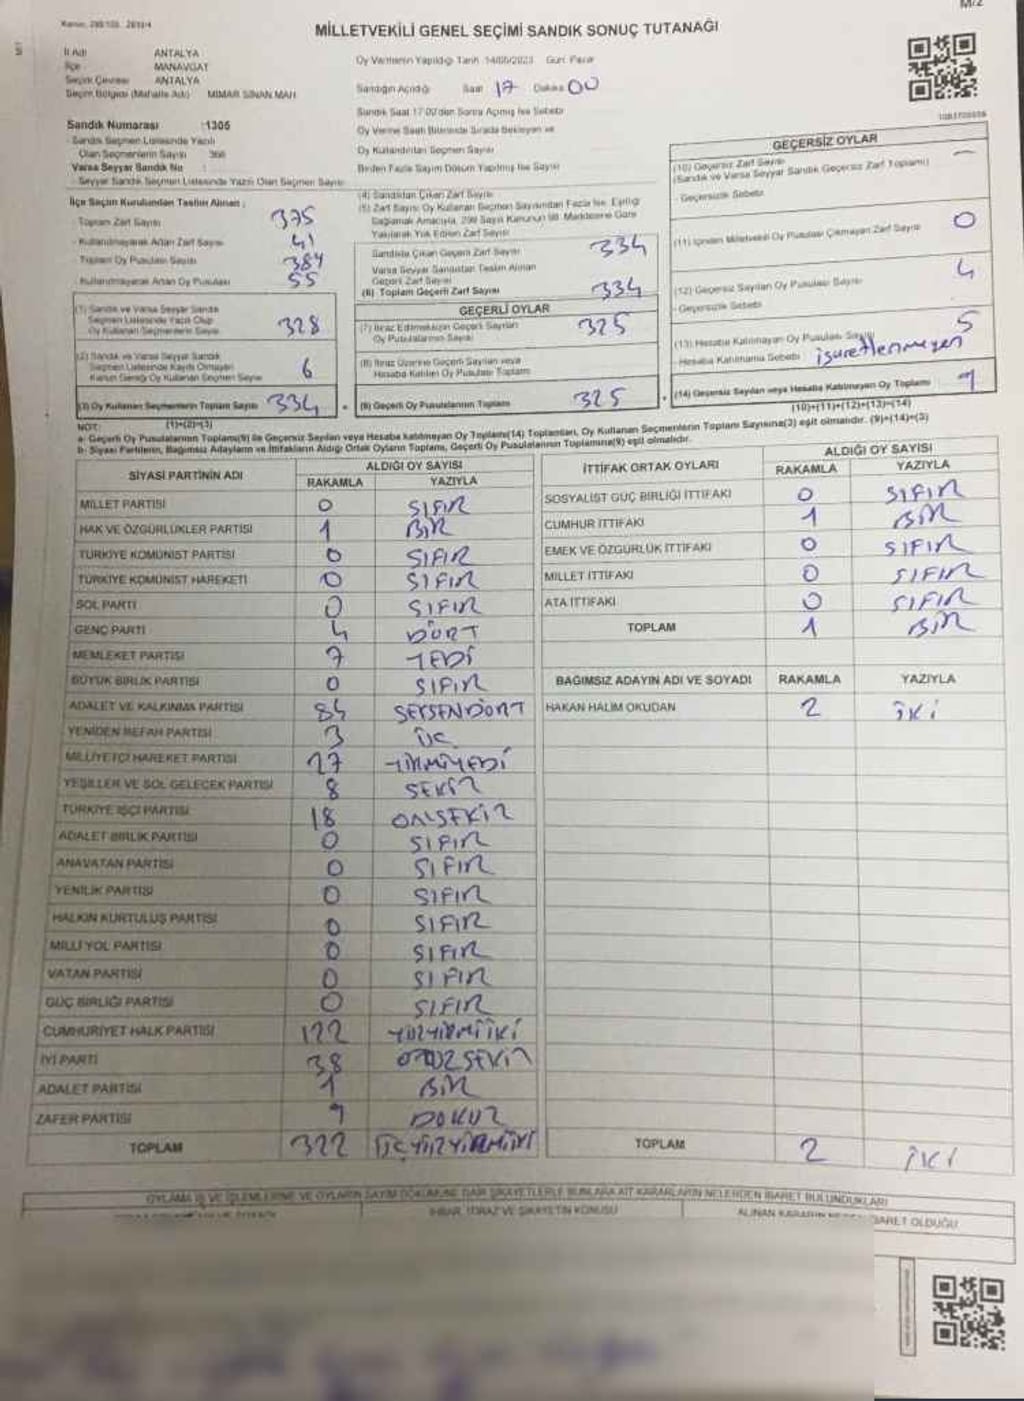 MİLLETVEKİLİ GENEL SEÇİMİ SANDIK SONUÇ TUTANAĞI
İl Adı ANTALYA
İlçe MANAVGAT
Seçim Çevresi ANTALYA
Seçim Bölgesi (Mahalle Adı) MİMAR SİNAN MAH
Sandık Numarası :1305
Sandık Seçmen Listesinde Yazılı
Olan Seçmenlerin Sayısı 366
Varsa Seyyar Sandık No
Seyyar Sandık Seçmen Listesinde Yazılı Olan Seçmen Sayısı
Oy Vermenin Yapıldığı Tarih 14/05/2023 Gün: Pazar
Sandığın Açıldığı Saat 17 Dakika 00
Sandık Saat 17:00'den Sonra Açılmış İse Sebebi
Oy Verme Saati Bitiminde Sırada Bekleyen ve
Oy Kullandırılan Seçmen Sayısı
Birden Fazla Sayım Döküm Yapılmış İse Sayısı
İlçe Seçim Kurulundan Teslim Alınan :
Toplam Zarf Sayısı 375
Kullanılmayarak Artan Zarf Sayısı 41
Toplam Oy Pusulası Sayısı 384
Kullanılmayarak Artan Oy Pusulası 55
(1) Sandık ve Varsa Seyyar Sandık
Seçmen Listesinde Yazılı Olup
Oy Kullanan Seçmenlerin Sayısı 328
(2) Sandık ve Varsa Seyyar Sandık
Seçmen Listesinde Kayıtlı Olmayan
Kanun Gereği Oy Kullanan Seçmen Sayısı 6
(3) Oy Kullanan Seçmenlerin Toplam Sayısı 334
(1)+(2)=(3)
(4) Sandıktan Çıkan Zarf Sayısı
(5) Zarf Sayısı Oy Kullanan Seçmen Sayısından Fazla İse, Eşitliği
Sağlamak Amacıyla, 298 Sayılı Kanunun 98. Maddesine Göre
Yakılarak Yok Edilen Zarf Sayısı
Sandıkta Çıkan Geçerli Zarf Sayısı 334
Varsa Seyyar Sandıktan Teslim Alınan
Geçerli Zarf Sayısı
(6) Toplam Geçerli Zarf Sayısı 334
GEÇERLİ OYLAR
(7) İtiraz Edilmeksizin Geçerli Sayılan
Oy Pusulalarının Sayısı 325
(8) İtiraz Üzerine Geçerli Sayılan veya
Hesaba Katılan Oy Pusulası Toplamı
(9) Geçerli Oy Pusulalarının Toplamı 325
GEÇERSİZ OYLAR
(10) Geçersiz Zarf Sayısı
(Sandık ve Varsa Seyyar Sandık Geçersiz Zarf Toplamı) —
Geçersizlik Sebebi
(11) İçinden Milletvekili Oy Pusulası Çıkmayan Zarf Sayısı 0
(12) Geçersiz Sayılan Oy Pusulası Sayısı 4
Geçersizlik Sebebi
(13) Hesaba Katılmayan Oy Pusulası Sayısı 5
Hesaba Katılmama Sebebi işaretlenmeyen
(14) Geçersiz Sayılan veya Hesaba Katılmayan Oy Toplamı 9
(10)+(11)+(12)+(13)=(14)
NOT:
a- Geçerli Oy Pusulalarının Toplamı(9) ile Geçersiz Sayılan veya Hesaba katılmayan Oy Toplamı(14) Toplamları, Oy Kullanan Seçmenlerin Toplam Sayısına(3) eşit olmalıdır. (9)+(14)=(3)
b- Siyasi Partilerin, Bağımsız Adayların ve İttifakların Aldığı Ortak Oyların Toplamı, Geçerli Oy Pusulalarının Toplamına(9) eşit olmalıdır.
SİYASİ PARTİNİN ADI ALDIĞI OY SAYISI
RAKAMLA YAZIYLA
MİLLET PARTİSİ 0 SIFIR
HAK VE ÖZGÜRLÜKLER PARTİSİ 1 BİR
TÜRKİYE KOMÜNİST PARTİSİ 0 SIFIR
TÜRKİYE KOMÜNİST HAREKETİ 0 SIFIR
SOL PARTİ 0 SIFIR
GENÇ PARTİ 4 DÖRT
MEMLEKET PARTİSİ 7 YEDİ
BÜYÜK BİRLİK PARTİSİ 0 SIFIR
ADALET VE KALKINMA PARTİSİ 84 SEKSENDÖRT
YENİDEN REFAH PARTİSİ 3 ÜÇ
MİLLİYETÇİ HAREKET PARTİSİ 27 YİRMİYEDİ
YEŞİLLER VE SOL GELECEK PARTİSİ 8 SEKİZ
TÜRKİYE İŞÇİ PARTİSİ 18 ONSEKİZ
ADALET BİRLİK PARTİSİ 0 SIFIR
ANAVATAN PARTİSİ 0 SIFIR
YENİLİK PARTİSİ 0 SIFIR
HALKIN KURTULUŞ PARTİSİ 0 SIFIR
MİLLİ YOL PARTİSİ 0 SIFIR
VATAN PARTİSİ 0 SIFIR
GÜÇ BİRLİĞİ PARTİSİ 0 SIFIR
CUMHURİYET HALK PARTİSİ 122 YÜZYİRMİİKİ
İYİ PARTİ 38 OTUZSEKİZ
ADALET PARTİSİ 1 BİR
ZAFER PARTİSİ 9 DOKUZ
TOPLAM 322 ÜÇYÜZYİRMİİKİ
İTTİFAK ORTAK OYLARI ALDIĞI OY SAYISI
RAKAMLA YAZIYLA
SOSYALİST GÜÇ BİRLİĞİ İTTİFAKI 0 SIFIR
CUMHUR İTTİFAKI 1 BİR
EMEK VE ÖZGÜRLÜK İTTİFAKI 0 SIFIR
MİLLET İTTİFAKI 0 SIFIR
ATA İTTİFAKI 0 SIFIR
TOPLAM 1 BİR
BAĞIMSIZ ADAYIN ADI VE SOYADI RAKAMLA YAZIYLA
HAKAN HALİM OKUDAN 2 İKİ
TOPLAM 2 İKİ
OYLAMA İŞ VE İŞLEMLERİNE VE OYLARIN SAYIM DÖKÜMÜNE DAİR ŞİKAYETLERLE BUNLARA AİT KARARLARIN NELERDEN İBARET BULUNDUKLARI
İHBAR, İTİRAZ VE ŞİKAYETİN KONUSU